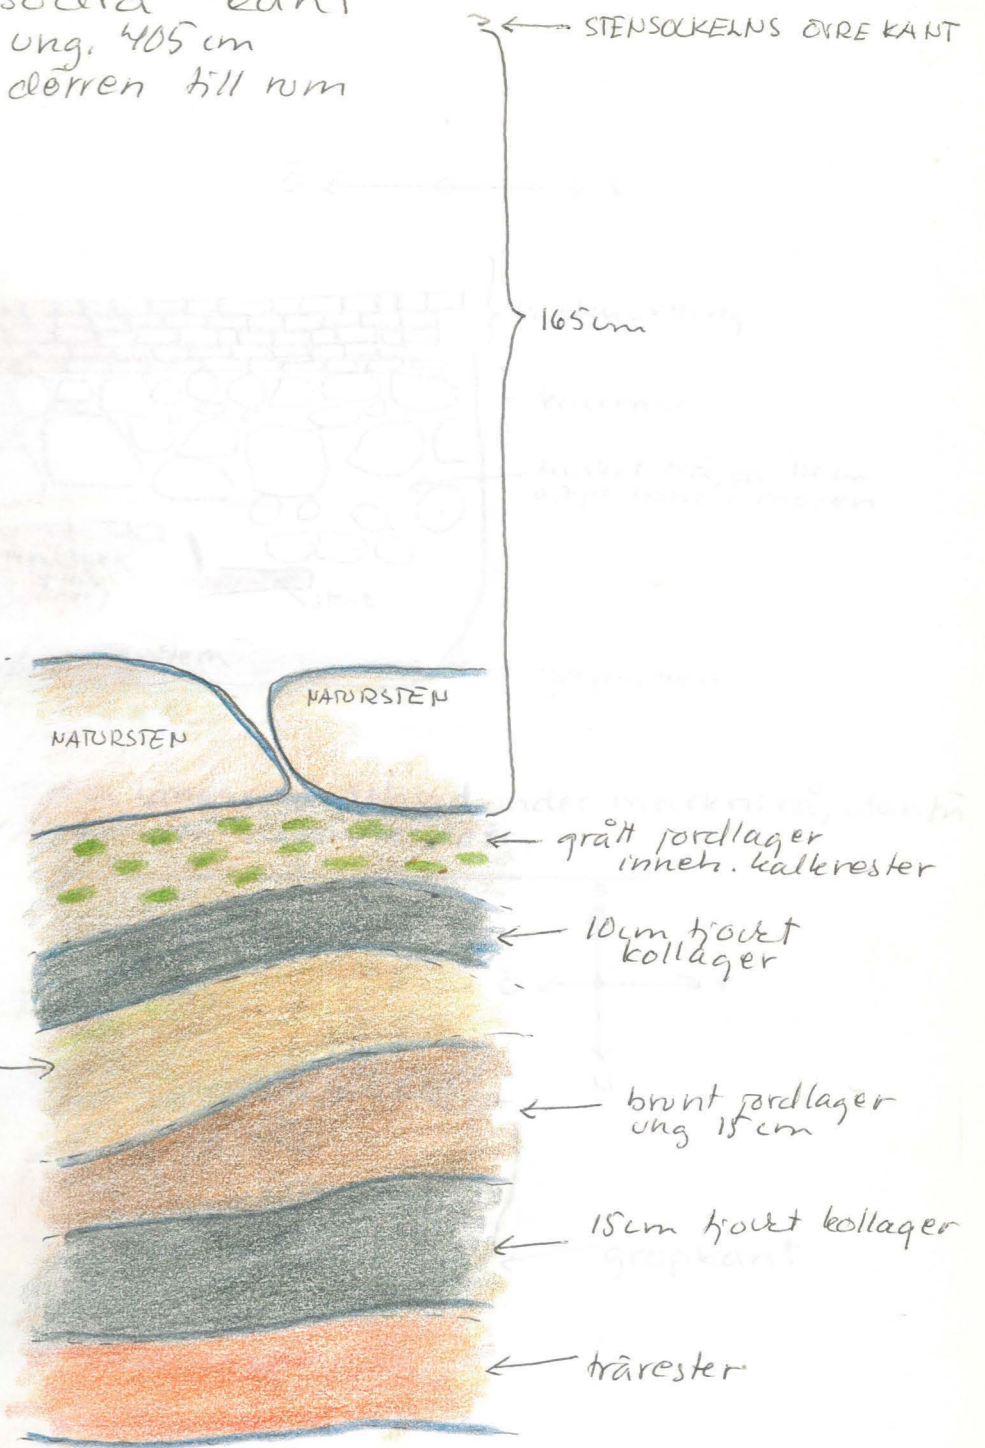 södra kant
ung. 405 cm
dörren till rum
STENSOCKELNS ÖVRE KANT
165 cm
NATURSTEN
NATURSTEN
grått jordlager
inneh. kalkrester
10cm tjockt
kollager
brunt jordlager
ung 15 cm
15cm tjockt kollager
gropkant
trärester